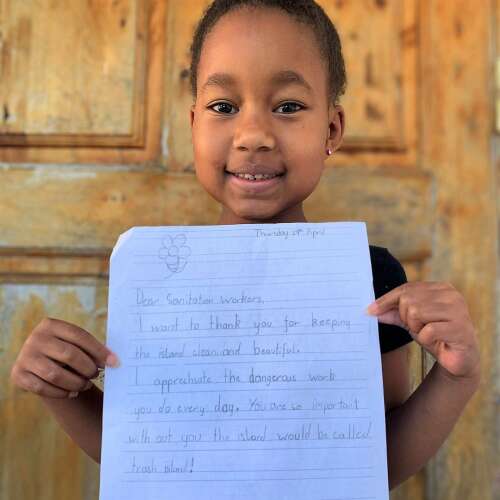 Thursday 9th April
Dear Sanitation workers,
I want to thank you for keeping
the island clean and beautiful.
I appreciate the dangerous work
you do every day. You are so important
with out you the island would be called
trash island!